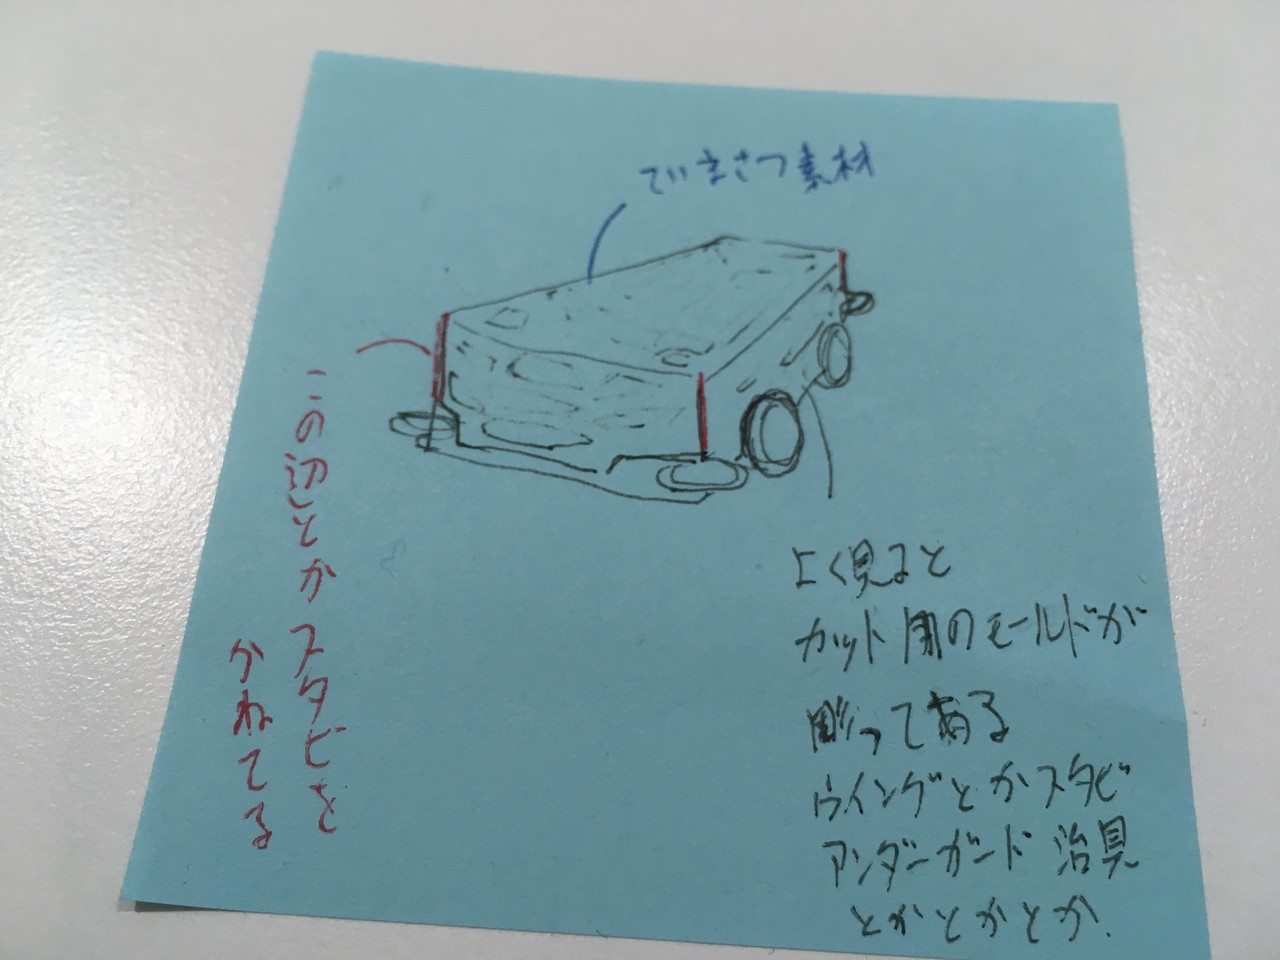 ていまさつ素材
この辺とかスタビを
かねてる
よく見ると
カット用のモールドが
彫ってある
ウイングとかスタビ
アンダーガード 治具
とかとかとか.